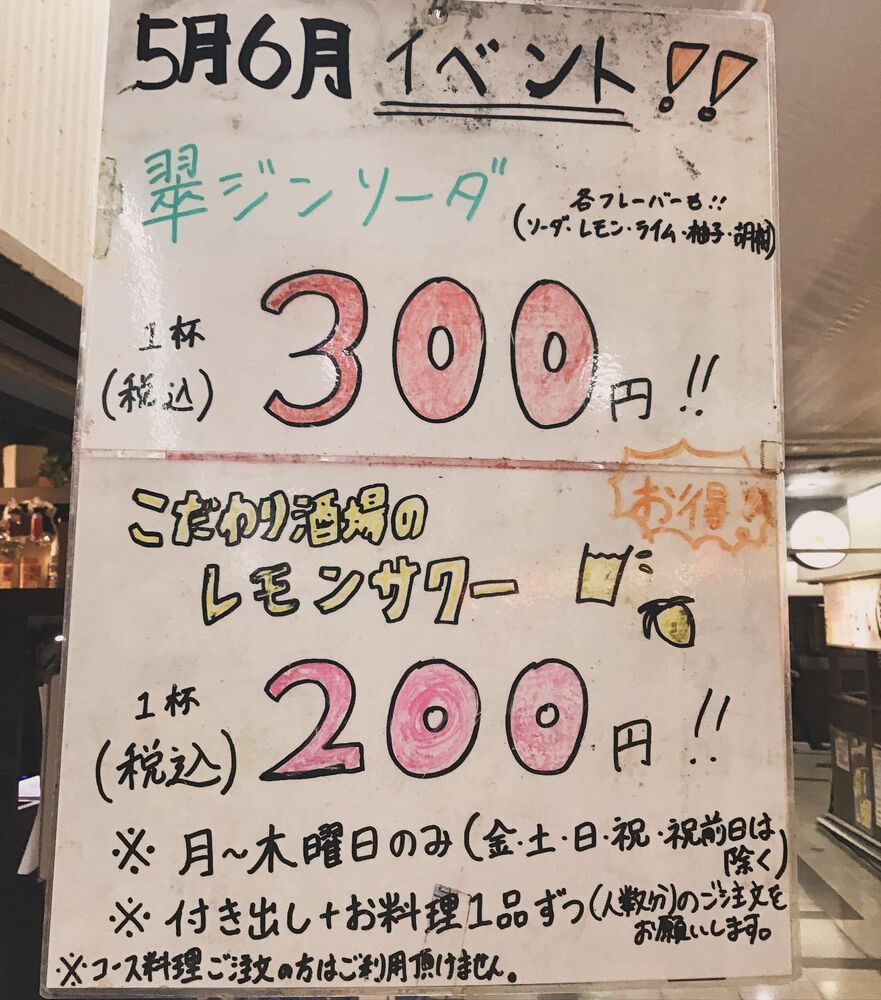 5月6月 イベント!!
翠ジンソーダ
各フレーバーも!!
(ソーダ・レモン・ライム・柚子・胡椒)
1杯
(税込)
300円!!
お得!!
こだわり酒場の
レモンサワー
1杯
(税込)
200円!!
※月〜木曜日のみ(金・土・日・祝・祝前日は
除く)
※付き出し+お料理1品ずつ(人数分)のご注文を
お願いします。
※コース料理ご注文の方はご利用頂けません。